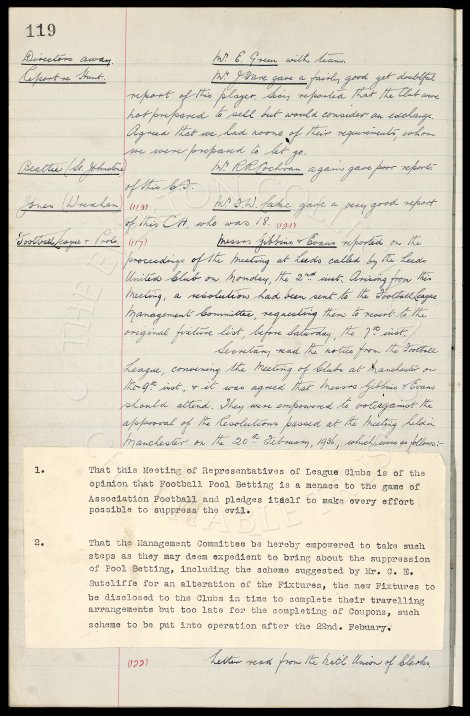 119
Directors away. Mr. E. Green with team.
Report re Hunt. Mr. J. Dare gave a fairly good yet doubtful
report of this player being reported that the Club were
not prepared to sell but would consider an exchange.
Agreed that we had none of their requirements, whom
we were prepared to let go.
Beattie (St. Johnstone Mr. R.R. Cochran again gave poor reports
of this C.F.
Jones (Wrexham (113) Mr. gave a very good report
of this C.H. who was 18. (121)
Football League & Pools. (117) Messrs Gibbins & Evans reported on the
proceedings of the Meeting at Leeds called by the Leeds
United Club on Monday, the 2nd inst. Arising from this
Meeting, a resolution had been sent to the Football League
Management Committee, requesting them to resort to the
original fixture list, before Saturday, the 7th inst.
Secretary read the notice from the Football
League, convening the Meeting of Clubs at Manchester on
the 9th inst, & it was agreed that Messrs Gibbins & Evans
should attend. They were empowered to vote against the
approval of the Resolutions passed at the Meeting held in
Manchester on the 20th February, 1936, which were as follows:-
1. That this Meeting of Representatives of League Clubs is of the
opinion that Football Pool Betting is a menace to the game of
Association Football and pledges itself to make every effort
possible to suppress the evil.
2. That the Management Committee be hereby empowered to take such
steps as they may deem expedient to bring about the suppression
of Pool Betting, including the scheme suggested by Mr. C. E.
Sutcliffe for an alteration of the Fixtures, the new Fixtures to
be disclosed to the Clubs in time to complete their travelling
arrangements but too late for the completing of Coupons, such
scheme to be put into operation after the 22nd. Febuary.
(122) Letter read from the Natl Union of Clerks